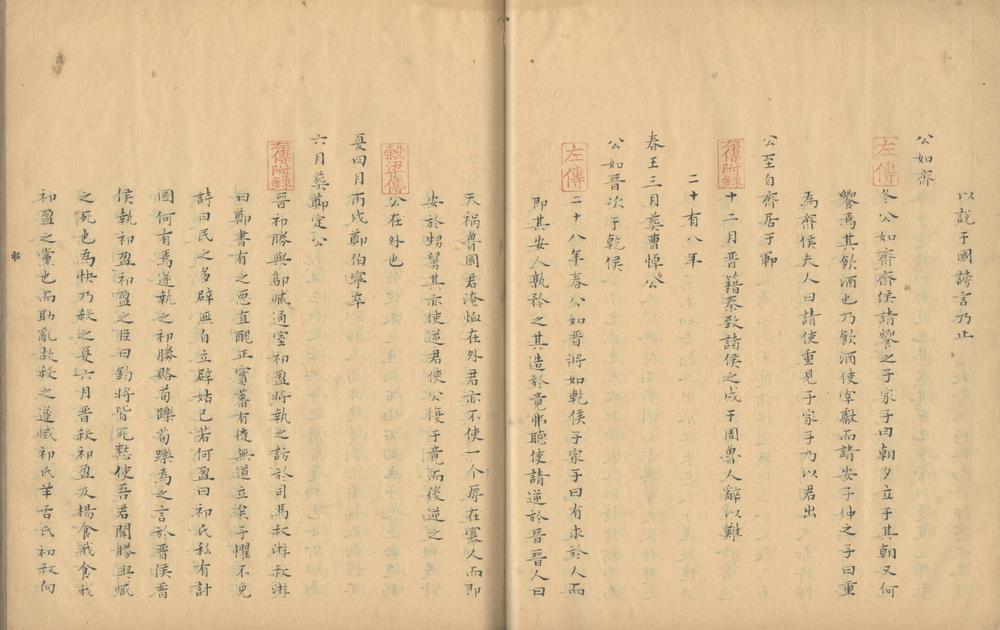 以說于國謗言乃止
公如齊
左傳 冬公如齊齊侯請饗之子家子曰朝夕立于其朝又何
饗焉其飲酒也乃飲酒使宰獻而請安子仲之子曰重
為齊侯夫人曰請使重見子家子乃以君出
公至自齊居于鄆
左傳附錄 十二月晉籍秦致諸侯之戍于周魯人辭以難
二十有八年
春王三月葬曹悼公
公如晉次于乾侯
左傳 二十八年春公如晉將如乾侯子家子曰有求於人而
即其安人孰矜之其造於竟弗聽使請逆於晉晉人曰
天禍魯國君淹恤在外君亦不使一个辱在寡人而即
安於甥舅其亦使逆君使公復于竟而後逆之
穀梁傳 公在外也
夏四月丙戌鄭伯寧卒
六月葬鄭定公
左傳附錄 晉祁勝與鄔臧通室祁盈將執之訪於司馬叔游叔游
曰鄭書有之惡直醜正實蕃有徒無道立矣子懼不免
詩曰民之多辟無自立辟姑已若何盈曰祁氏私有討
國何有焉遂執之祁勝賂荀躒荀躒為之言於晉侯晉
侯執祁盈祁盈之臣曰鈞將皆死憖使吾君聞勝與臧
之死也為快乃殺之夏六月晉殺祁盈及揚食我食我
祁盈之黨也而助亂故殺之遂滅祁氏羊舌氏初叔向